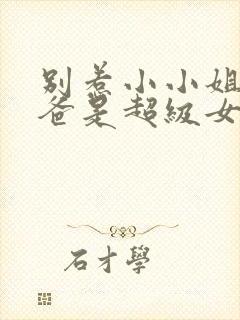 别惹小小姐
爸是超级女
石才學